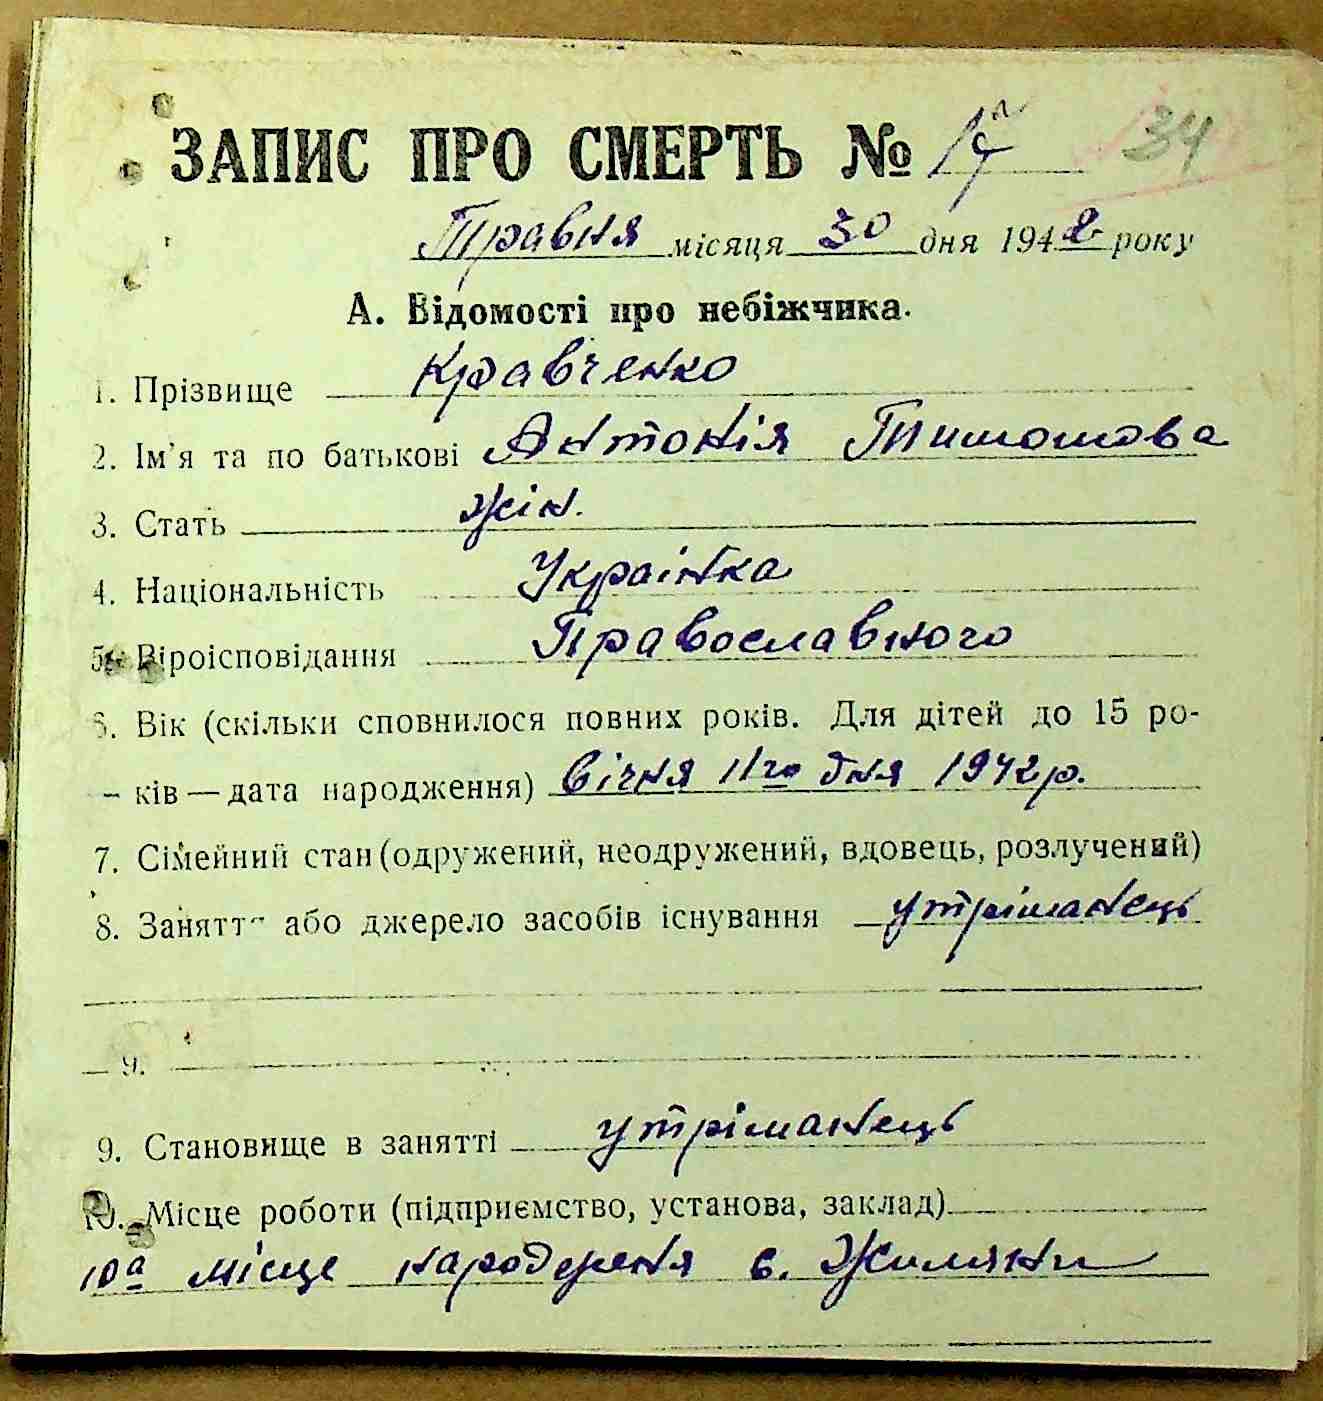 ЗАПИС ПРО СМЕРТЬ № 17 34
Травня місяця 30 дня 1942 року
А. Відомості про небіжчика.
1. Прізвище Кравченко
2. Ім'я та по батькові Антонія Тимошова
3. Стать жін.
4. Національність Украінка
5. Віроісповідання Православного
6. Вік (скільки сповнилося повних років. Для дітей до 15 ро-
ків — дата народження) Січня 11го дня 1942 р.
7. Сімейний стан (одружений, неодружений, вдовець, розлучений)
8. Заняття або джерело засобів існування утріманець
9.
9. Становище в занятті утріманець
10. Місце роботи (підприємство, установа, заклад)
10а місце народженя с. Жиляни